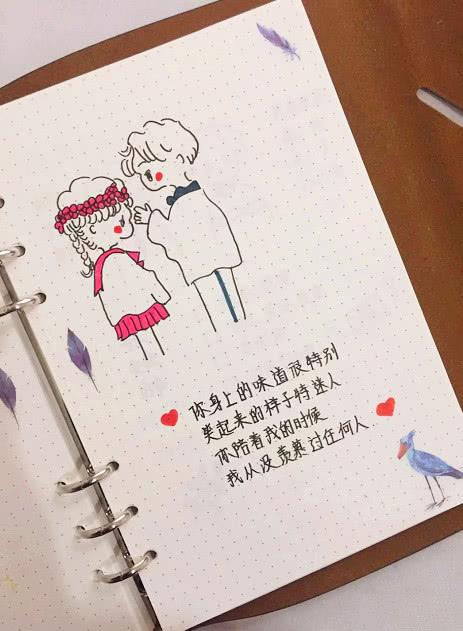 你身上的味道很特别
笑起来的样子特迷人
你陪着我的时候
我从没羡慕过任何人